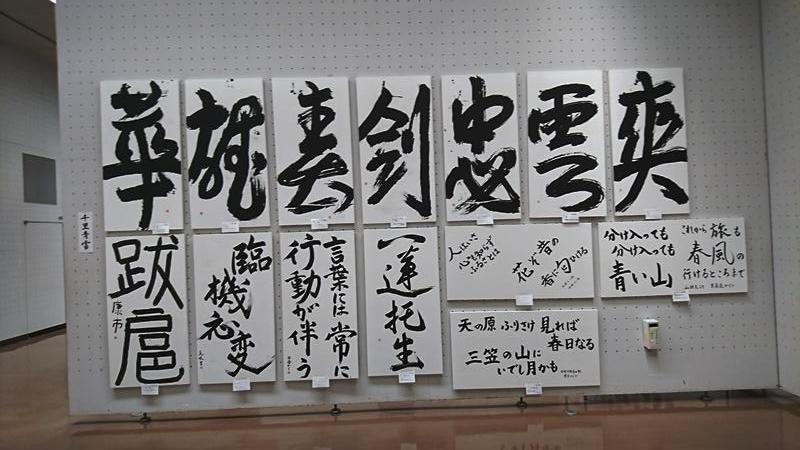 華
雄
剣
忠
雲
爽
跋扈
康市
臨
機応
変
言葉には常に
行動が伴う
一蓮托生
人はいさ
心も知らず
ふるさとは
花ぞ昔の
香に匂ひける
分け入っても
分け入っても
青い山
これから旅も
春風の
行けるところまで
天の原ふりさけ見れば
春日なる
三笠の山に
いでし月かも